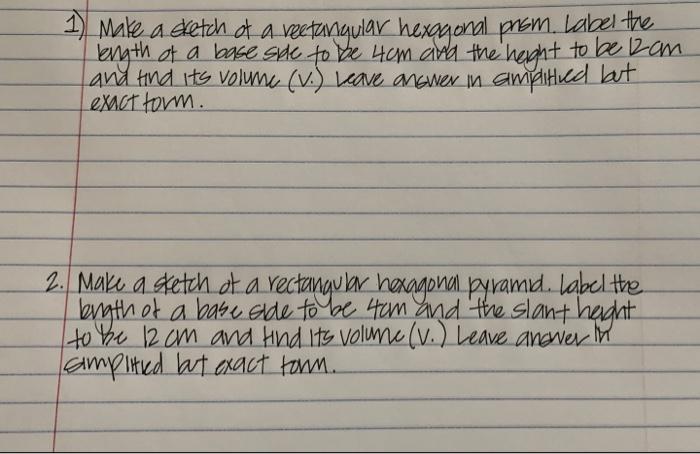 1) Make a sketch of a rectangular hexagonal prism. Label the
length of a base side to be 4cm and the height to be 12cm
and find its volume (V.) Leave answer in simplified but
exact form.
2. Make a sketch of a rectangular hexagonal pyramid. Label the
length of a base side to be 4cm and the slant height
to be 12 cm and find its volume (V.) Leave answer in
simplified but exact form.